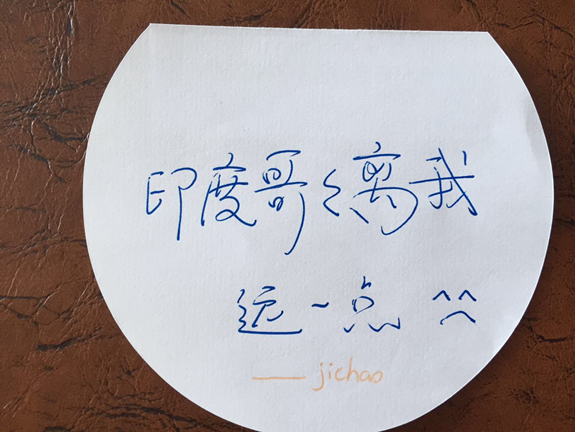 印度哥々离我
远一点 ^^
— jichao